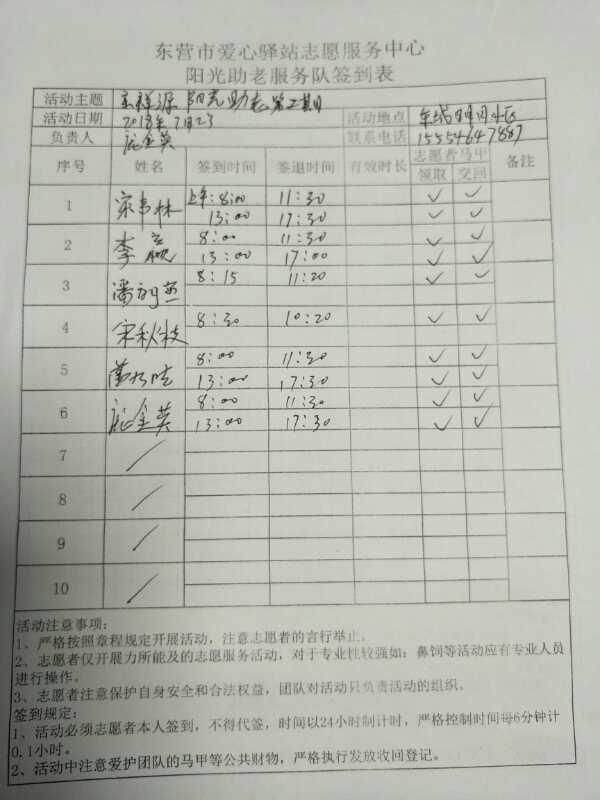 东营市爱心驿站志愿服务中心
阳光助老服务队签到表
活动主题 阳光助老第二期
活动日期 2018年7月23 活动地点
负责人 庞金英 联系电话 15554647887
序号 姓名 签到时间 签退时间 有效时长 志愿者马甲 备注
领取 交回
1 上午:8:00 11:30 ✓ ✓
13:00 17:30 ✓ ✓
2 李 8:00 11:30 ✓ ✓
13:00 17:00 ✓ ✓
3 潘 8:15 11:20 ✓ ✓
4 宋秋枝 8:30 10:20 ✓ ✓
5 8:00 11:30 ✓ ✓
13:00 17:30 ✓ ✓
6 庞金英 8:00 11:30 ✓ ✓
13:00 17:30 ✓ ✓
7 /
8 /
9 /
10 /
活动注意事项:
1、严格按照章程规定开展活动，注意志愿者的言行举止。
2、志愿者仅开展力所能及的志愿服务活动，对于专业性较强如：鼻饲等活动应有专业人员
进行操作。
3、志愿者注意保护自身安全和合法权益，团队对活动只负责活动的组织。
签到规定:
1、活动必须志愿者本人签到，不得代签，时间以24小时制计时，严格控制时间每6分钟计
0.1小时。
2、活动中注意爱护团队的马甲等公共财物，严格执行发放收回登记。